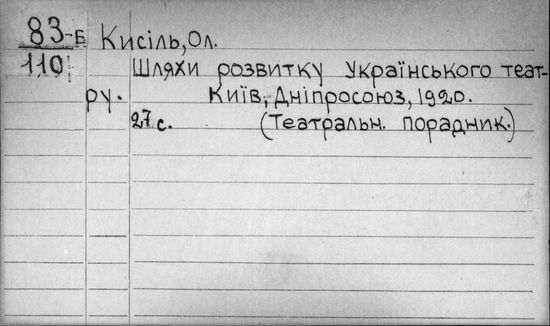 83-Б Кисіль, Ол.
110 Шляхи розвитку Українського теат-
ру. Київ, Дніпросоюз, 1920.
27 с. (Театральн. порадник.)